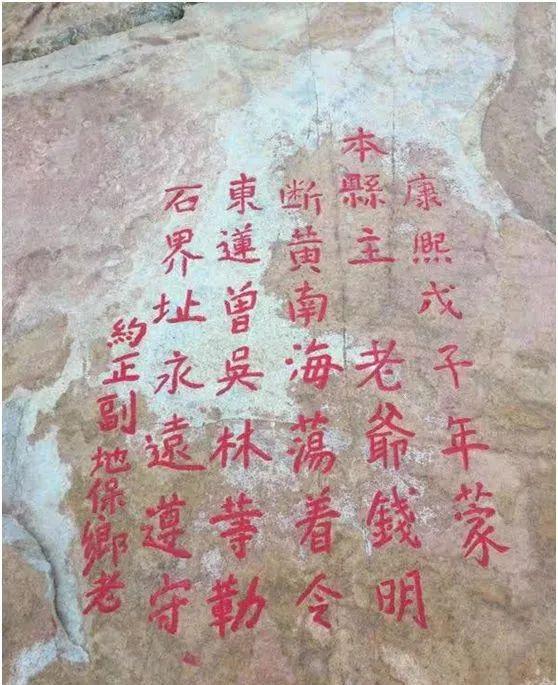 康熙戊子年蒙
本縣主老爺錢明
断黄南海蕩着令
東蓮曾吳林等勒
石界址永遠遵守
約正副地保鄉老